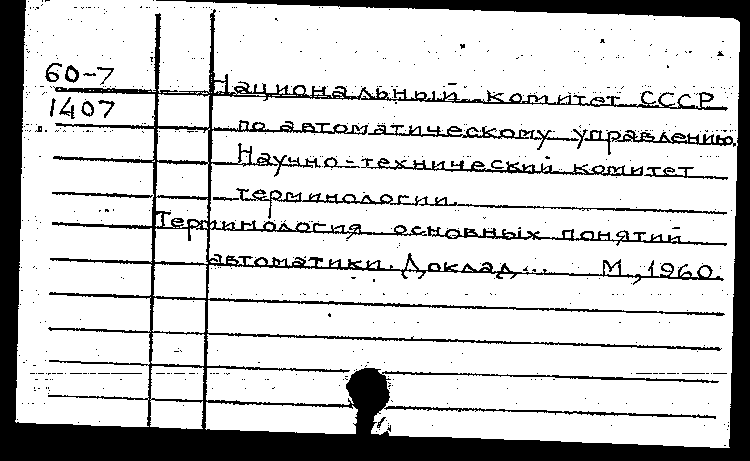 60-7
1407
Национальный комитет СССР
по автоматическому управлению.
Научно-технический комитет
терминологии.
Терминология основных понятий
автоматики. Доклад... М.,1960.